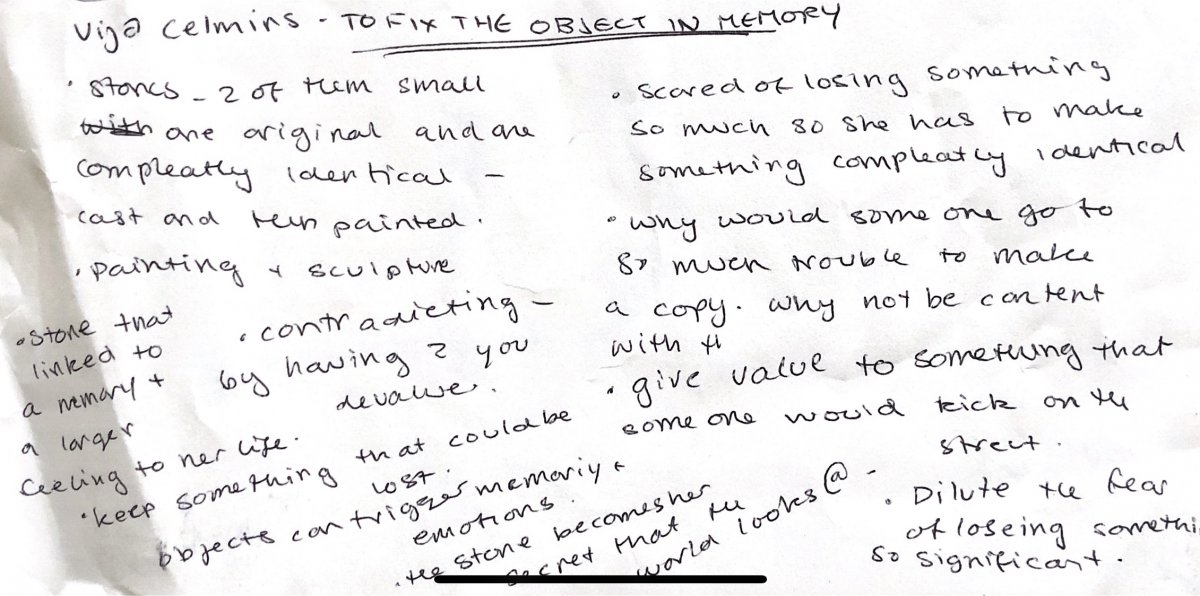 Vija Celmins - TO FIX THE OBJECT IN MEMORY
• Stones - 2 of them small
with one original and one
compleatly identical -
cast and then painted.
• painting + sculpture
• stone that
linked to
a memory +
a larger
feeling to her life.
• contradicting -
by having 2 you
devalue.
• keep something that could be
lost.
objects can trigger memoriy +
emotions.
• the stone becomes her
secret that the
world looks @ -
• scared of losing something
so much so she has to make
something compleatly identical
• why would some one go to
so much trouble to make
a copy. why not be content
with
• give value to something that
some one would kick on the
street.
• Dilute the fear
of loseing somethi
so significant.